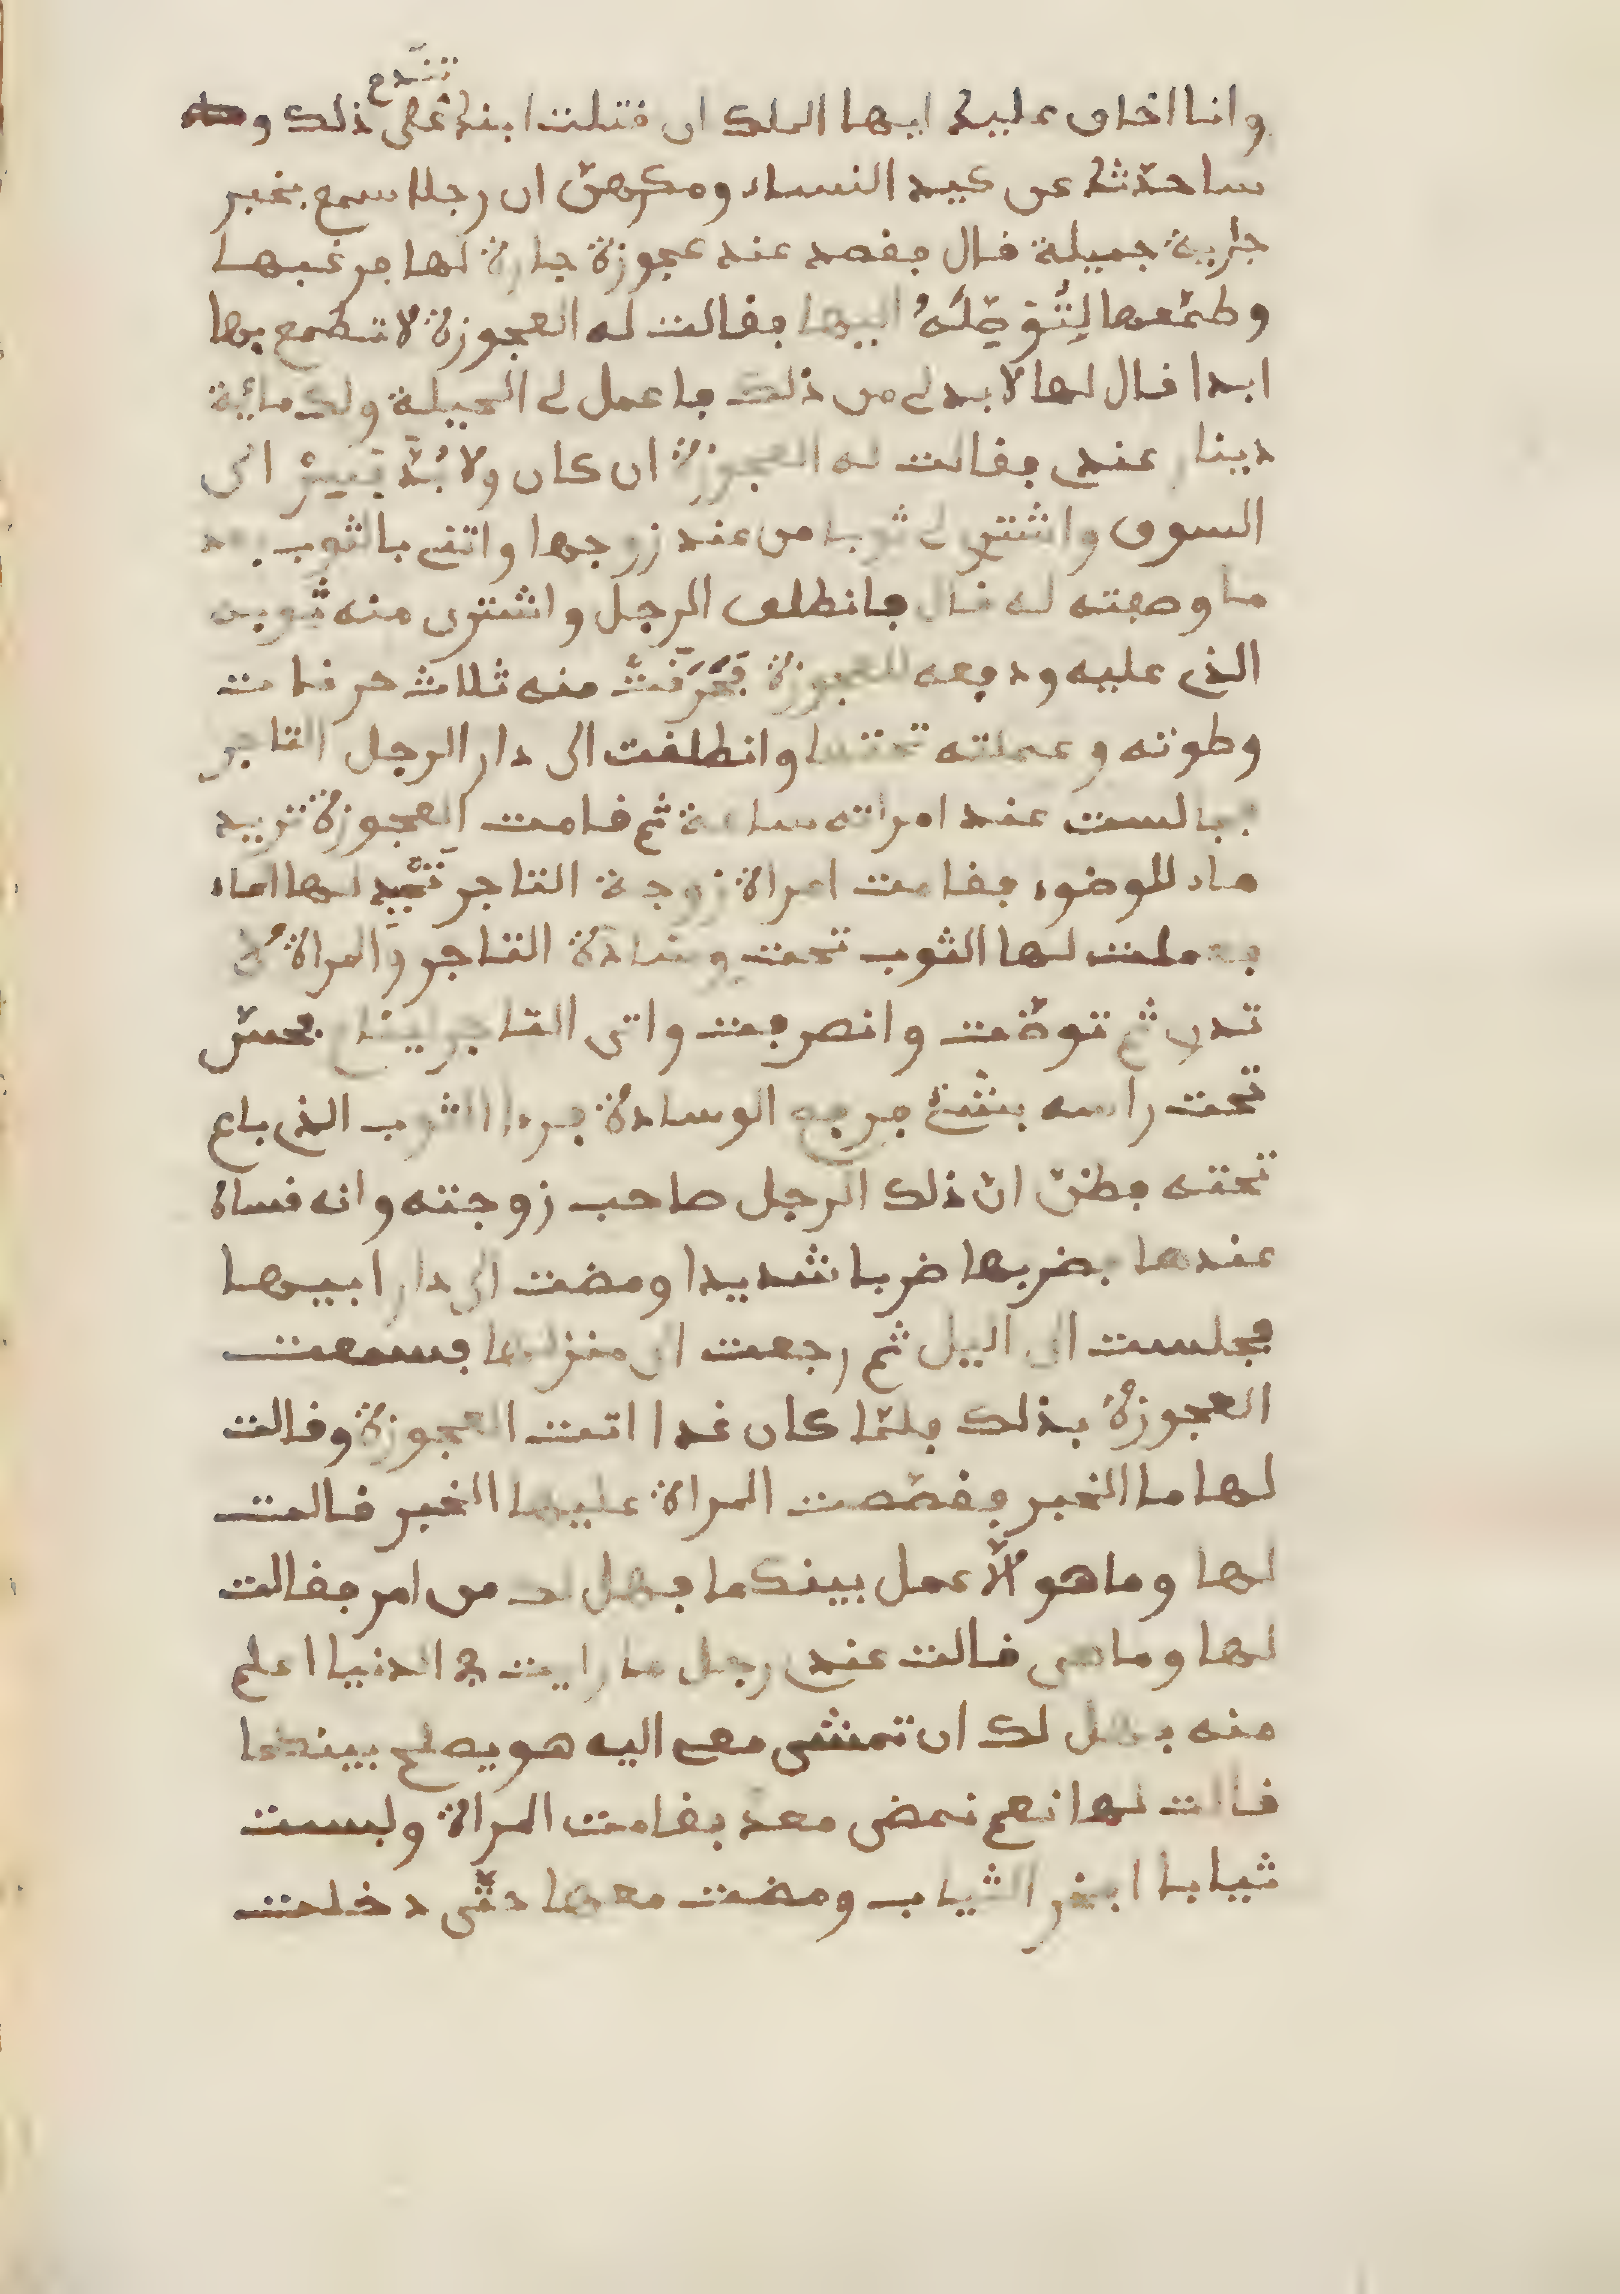 تندم
وانا اخاف عليك ايها الملك ان قتلت ابنك على ذلك و
ساحدّثك عن كيد النساء ومكرهنّ ان رجلا سمع بخبر
جارية جميلة قال فقصد عند عجوزة جارة لها فرغبها
وطمّعها لِتُوَصِّلَهُ اليها فقالت له العجوزة لا تطمع بها
ابدا قال لها لا بد لى من ذلك فاعمل لى الحيلة ولك مائة
دينار عندى فقالت له العجوزة ان كان ولا بُدَّ فسِرْ الى
السوق واشترى لى ثوبا من عند زوجها واتنى بالثوب بعد
ما وصفته له قال فانطلق الرجل واشترى منه ثوبه
الذى عليه ودفعه للعجوزة فحَرَقَتْ منه ثلاث حرقات
وطوته وعملته تحتها وانطلقت الى دار الرجل التاجر
فجالست عند امراته ساعة ثم قامت العجوزة تريد
ماء للوضوء فقامت امراة زوجة التاجر لها الماء
فعملت لها الثوب تحت وسادة التاجر والمراة لم
تدر ثم توضّت وانصرفت واتى التاجر لينام فحسّ
تحت راسه بشئ فرفع الوسادة فراى الثوب الذى باع
تحته فظنّ انّ ذلك الرجل صاحب زوجته وانه نساه
عندها فضربها ضربا شديدا ومضت الى دار ابيها
فجلست الى اليل ثم رجعت الى منزلها فسمعت
العجوزة بذلك فلمّا كان غدا اتت العجوزة وقالت
لها ما الخبر فقصّصت المراة عليها الخبر قالت
لها وما هو الّا عمل بينكما فهل لك من امر فقالت
لها وما هى قالت عندى رجل ما رايت فى الدنيا اعلم
منه فهل لك ان تمشى معى اليه هو يصلح بينكما
قالت لها نعم نمضى معك فقامت المراة ولبست
ثيابا افخر الثياب ومضت معها حتّى دخلت